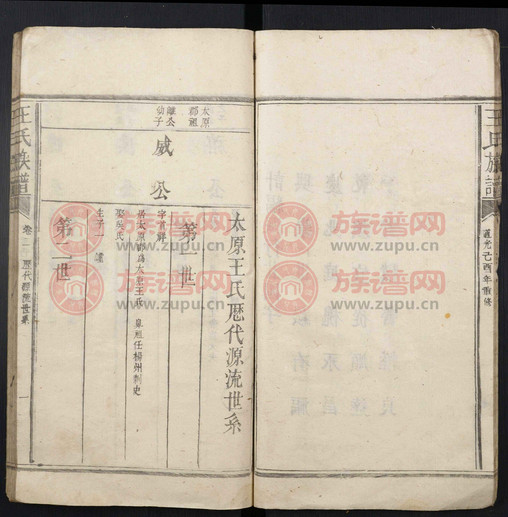 王氏族譜
道光己酉年敬修
太原王氏歷代源流世系
第一世
太原
郡祖
離公
幼子
威公
字首
居太原郡爲太原王氏
皇祖任楊州刺史
娶
氏
生子
第二世
王氏族譜
卷二
歷代源流世系
一
族谱网
www.zupu.cn
族谱网
www.zupu.cn
族谱网
www.zupu.cn
族谱网
www.zupu.cn